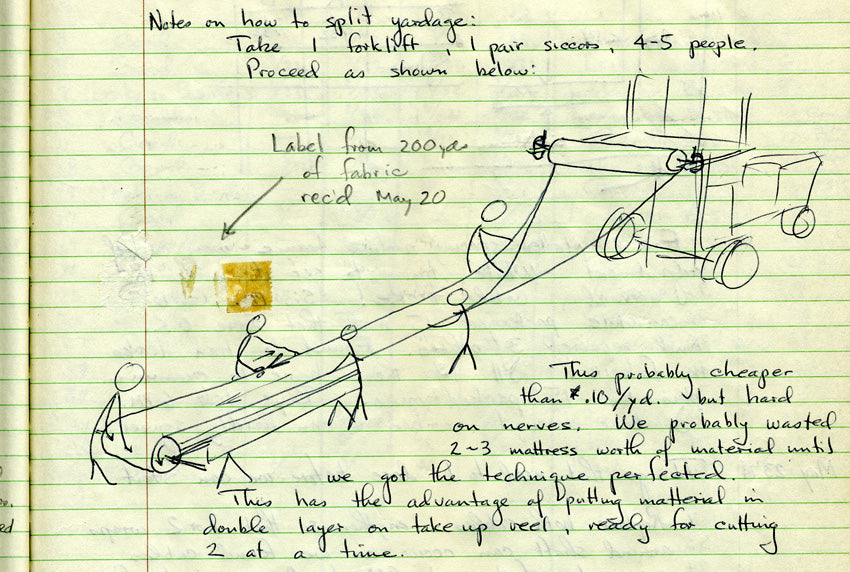 Notes on how to split yardage:
Take 1 forklift, 1 pair siccors, 4-5 people.
Proceed as shown below:
Label from 200 yds
of fabric
rec'd May 20
This probably cheaper
than $.10/yd. but hard
on nerves. We probably wasted
2~3 mattress worth of material until
we got the technique perfected.
This has the advantage of putting matterial in
double layer on take up reel, ready for cutting
2 at a time.